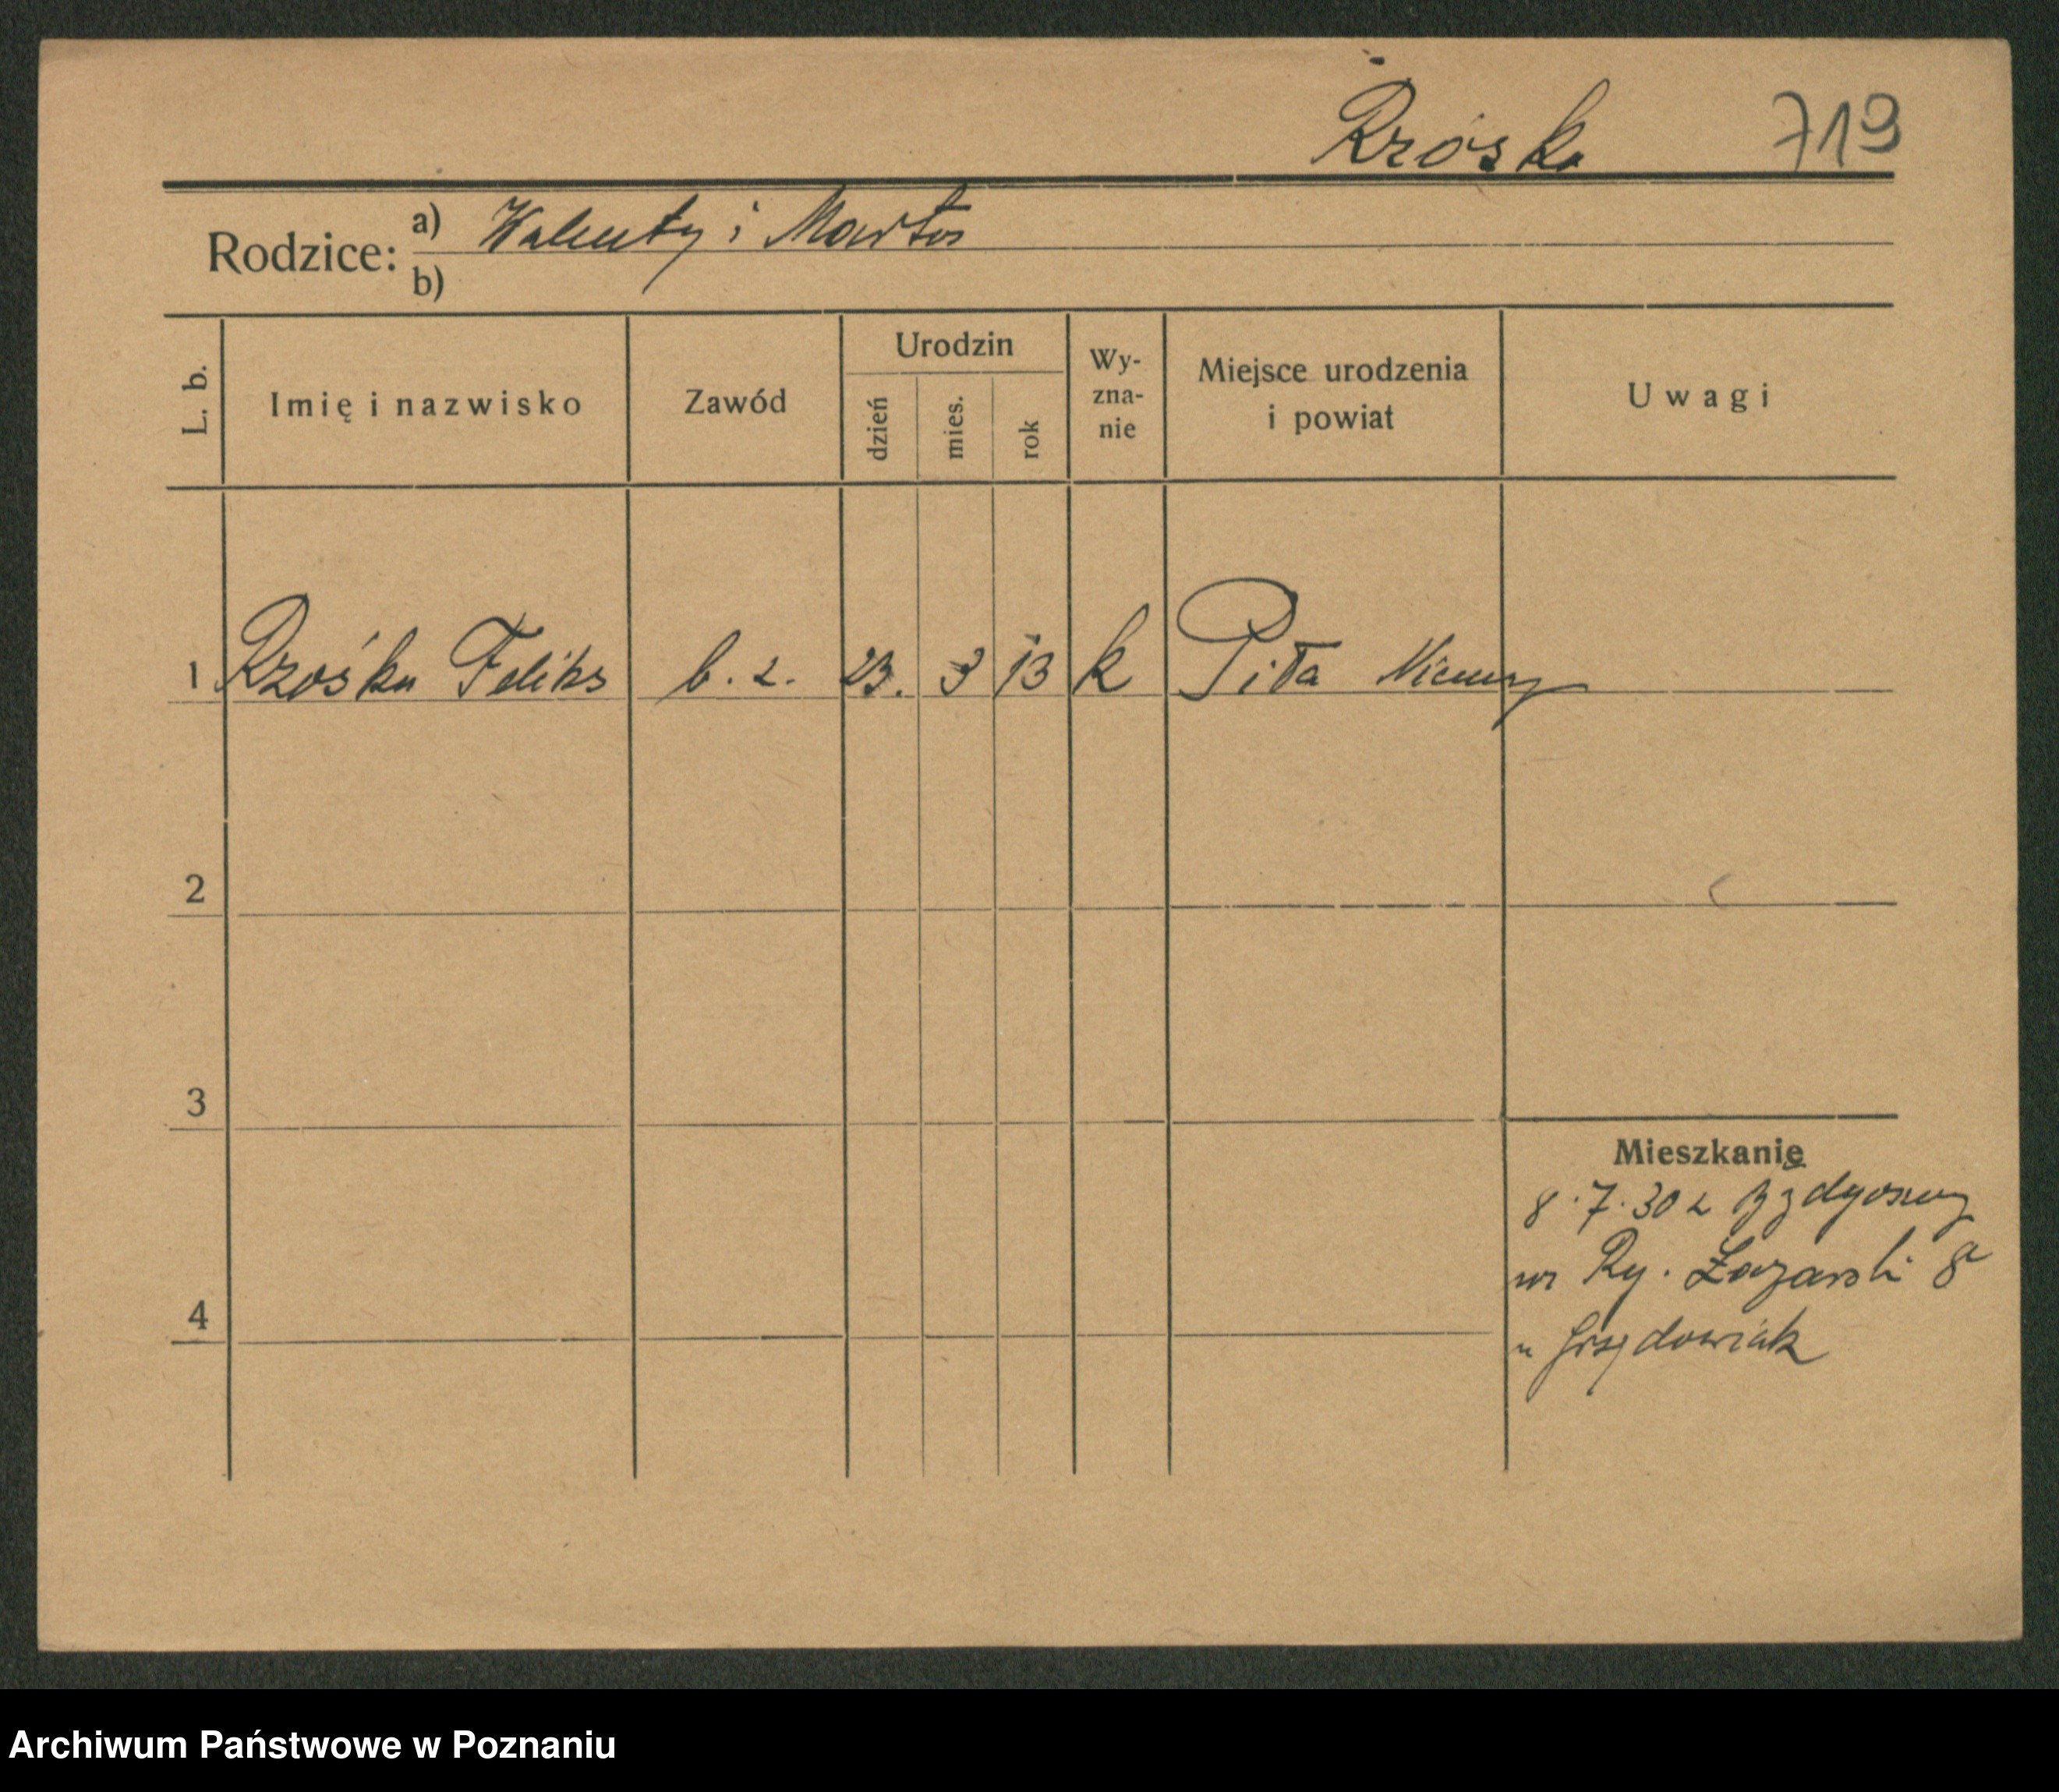 Rzóska 719
Rodzice: a) Walenty i Marta
b)
L. b. Imię i nazwisko Zawód Urodzin dzień mies. rok Wy-zna-nie Miejsce urodzenia i powiat Uwagi
1 Rzóska Feliks b. z. 23. 3 13 k Piła Niemcy
2
3
4
Mieszkanie
8.7.30 z Bydgoszczy
Ry. Łazarski 8a
u
Archiwum Państwowe w Poznaniu